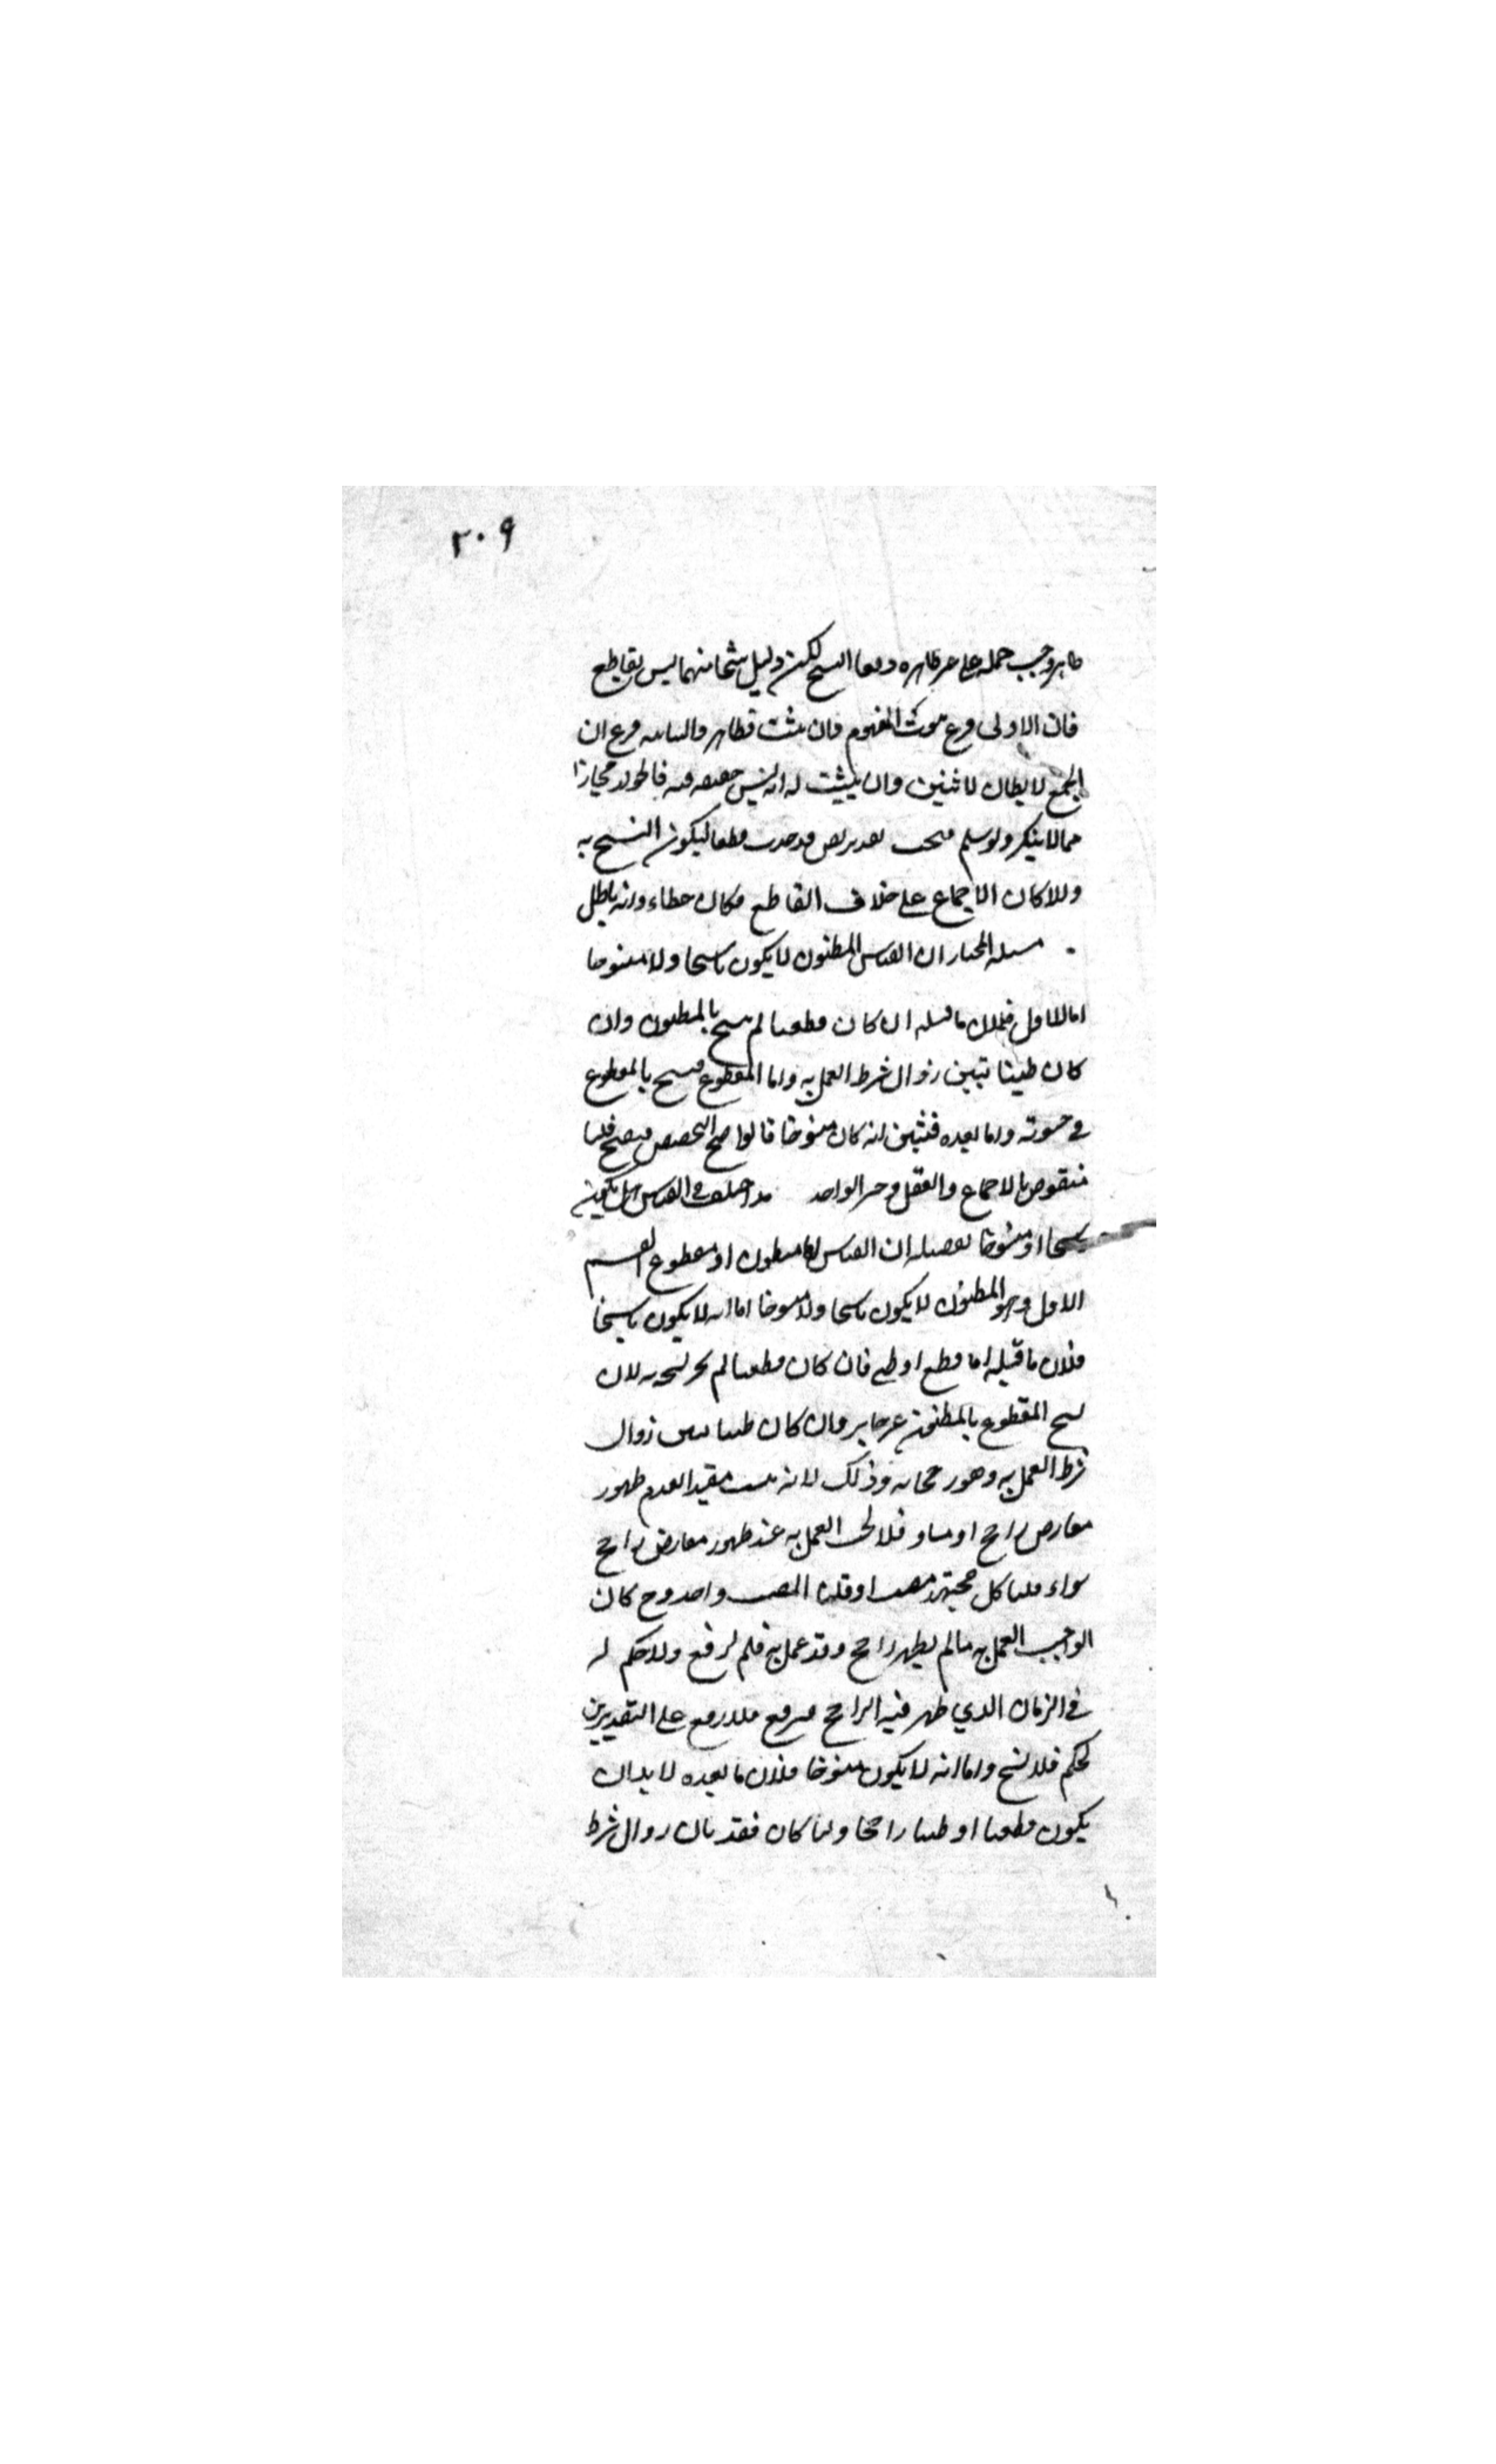 ٢٠٩
ظاهر وجب حمله على غير ظاهره دفعا للنسخ لكن دليل شيئا منهما ليس بقاطع
فان الاولى فرع ثبوت المفهوم فان ثبت فظاهر والثانيه فرع ان
الجمع لا يطلق لاثنين وان يثبت له انه ليس حقيقه فيه فاطلاقه مجازا
مما لا ينكر ولو سلم فيجب تقدير نص قد حدث قطعا ليكون النسخ به
والا كان الاجماع على خلاف القاطع فكان خطاء وانه باطل
مسله المختار ان القياس المظنون لا يكون ناسخا ولا منسوخا
اما الاول فلان ما قبله ان كان قطعيا لم ينسخ بالمظنون وان
كان ظنيا تبين زوال شرط العمل به واما المقطوع فينسخ بالمقطوع
في حيوته واما بعده فتبين انه كان منسوخا قالوا صح التخصيص فيصح قلنا
منقوض بالاجماع والعقل وخبر الواحد قد اختلف في القياس هل يكون
ناسخا او منسوخا تفصيله ان القياس اما مظنون او مقطوع القسم
الاول وهو المظنون لا يكون ناسخا ولا منسوخا اما انه لا يكون ناسخا
فلان ما قبله اما قطعي او ظني فان كان قطعيا لم يجز نسخه به لان
نسخ المقطوع بالمظنون غير جايز وان كان ظنيا تبين زوال
شرط العمل به وهو رجحانه وذلك لانه ثبت مقيدا بعدم ظهور
معارض راجح او مساو فلا يجب العمل به عند ظهور معارض راجح
سواء قلنا كل مجتهد مصيب او قلنا المصيب واحد وح كان
الواجب العمل به ما لم يظهر راجح وقد عمل به فلم يرفع ولا حكم له
في الزمان الذي ظهر فيه الراجح فيرفع فلا رفع على التقديرين
لحكم فلا نسخ واما انه لا يكون منسوخا فلان ما بعده لا بد ان
يكون قطعيا او ظنيا راجحا وايا كان فقد بان زوال شرط